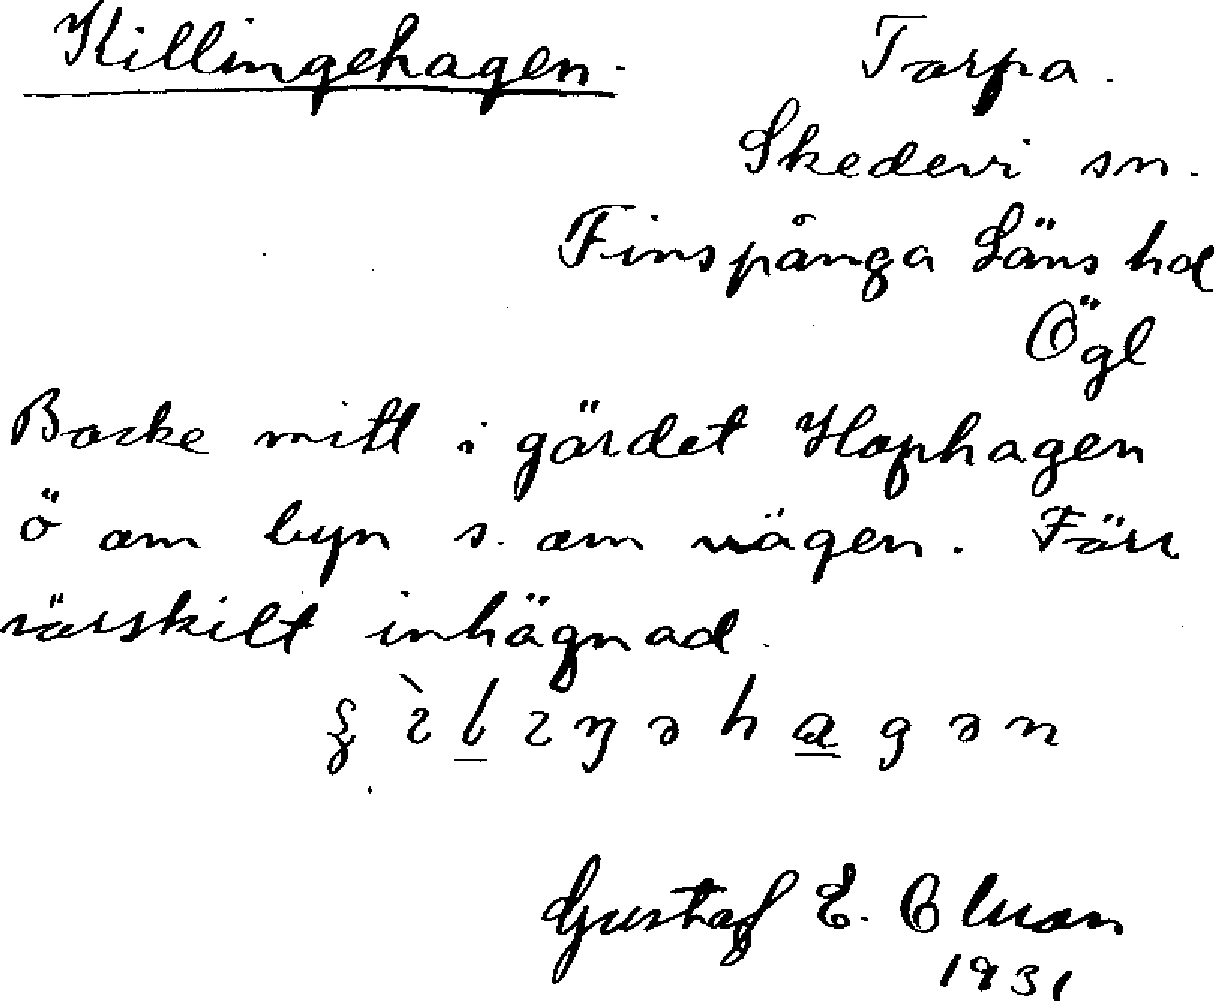 Killingehagen. Torpa.
Skedevi sn.
Finspånga Läns hd
Ögl
Backe mitt i gärdet Hophagen
ö om byn s. om vägen. Förr
särskilt inhägnad.
Gustaf E.
1931